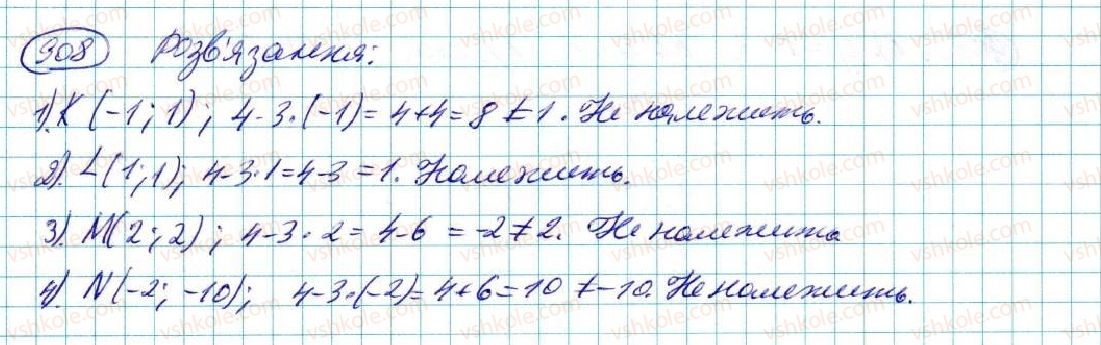 908 Розв'язання:
1). K (-1; 1); 4-3·(-1)= 4+4= 8 ≠ 1. Не належить.
2). L(1; 1); 4-3·1=4-3 =1. Належить.
3). M(2; 2); 4-3·2= 4-6 = -2≠2. Не належить
4). N(-2; -10); 4-3·(-2)= 4+6=10 ≠-10. Не належить.